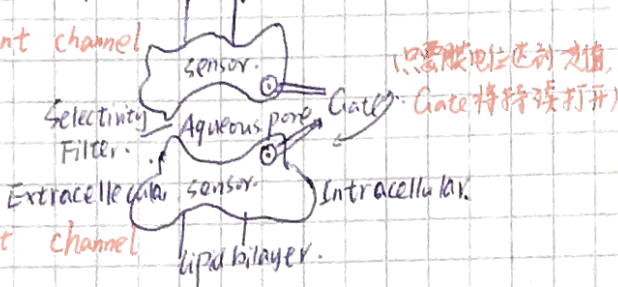 nt channel
sensor.
(只要膜电位达到一定值,
Gate.
Gate将持续打开)
Selectivity
Filter.
Aqueous pore
Extracellecular
sensor.
Intracellular.
t channel
lipid bilayer.